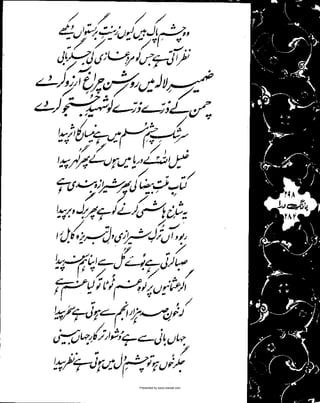 وہ چشمِ پاک بیں کیوں زینتِ برگستواں دیکھے
نظر آتی ہے جس کو مردِ غازی کی جگر تابی
ضمیرِ لالہ میں روشن چراغِ آرزو کر دے
چمن کے ذرّے ذرّے کو شہیدِ جستجو کر دے
سرشکِ چشمِ مسلم میں ہے نیساں کا اثر پیدا
خلیل اللہ کے دریا میں ہوں گے پھر گہر پیدا
کتابِ ملّتِ بیضا کی پھر شیرازہ بندی ہے
یہ شاخِ ہاشمی کرنے کو ہے پھر برگ و بر پیدا
ربود آں ترکِ شیرازی دلِ تبریز و کابل را
صبا کرتی ہے بوئے گل سے اپنا ہم سفر پیدا
اگر عثمانیوں پر کوہِ غم ٹوٹا تو کیا غم ہے
کہ خونِ صد ہزار انجم سے ہوتی ہے سحر پیدا
جہاں بانی سے ہے دشوار تر کارِ جہاں بینی
جگر خوں ہو تو چشمِ دل میں ہوتی ہے نظر پیدا
۲۹۸
بانگِ درا
۲۸۲
Presented by www.iqbalm.com